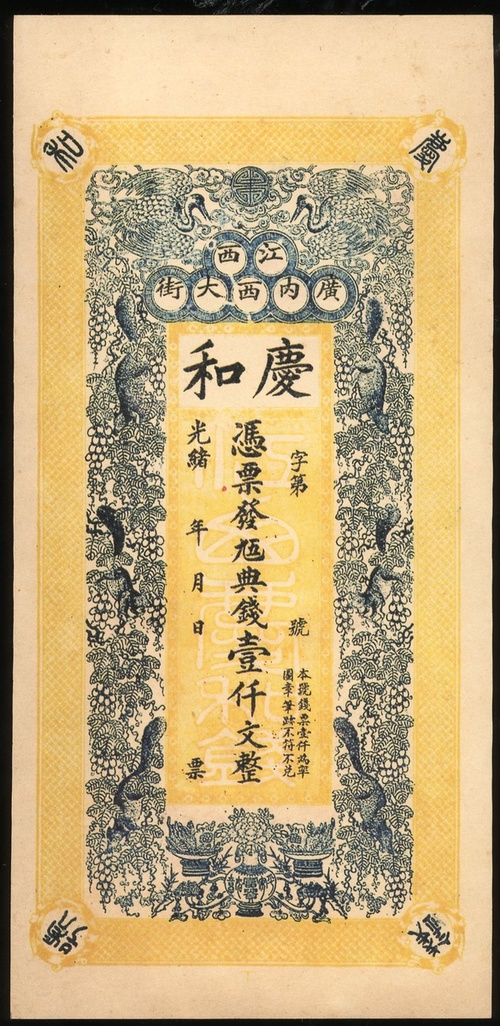 慶和
江西
廣內西大街
慶和
字第 號
本號錢票壹仟為率
圖章筆跡不符不兑
憑票發典錢壹仟文整
光緒 年 月 日 票